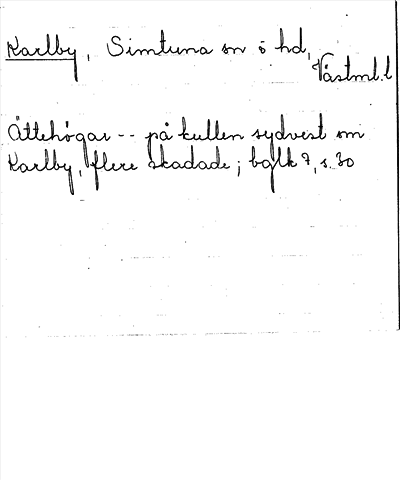 Karlby, Simtuna sn o hd,
Västml.l
Ättehögar -- på kullen sydvest om
Karlby, flere skadade; bglk 7, s. 30